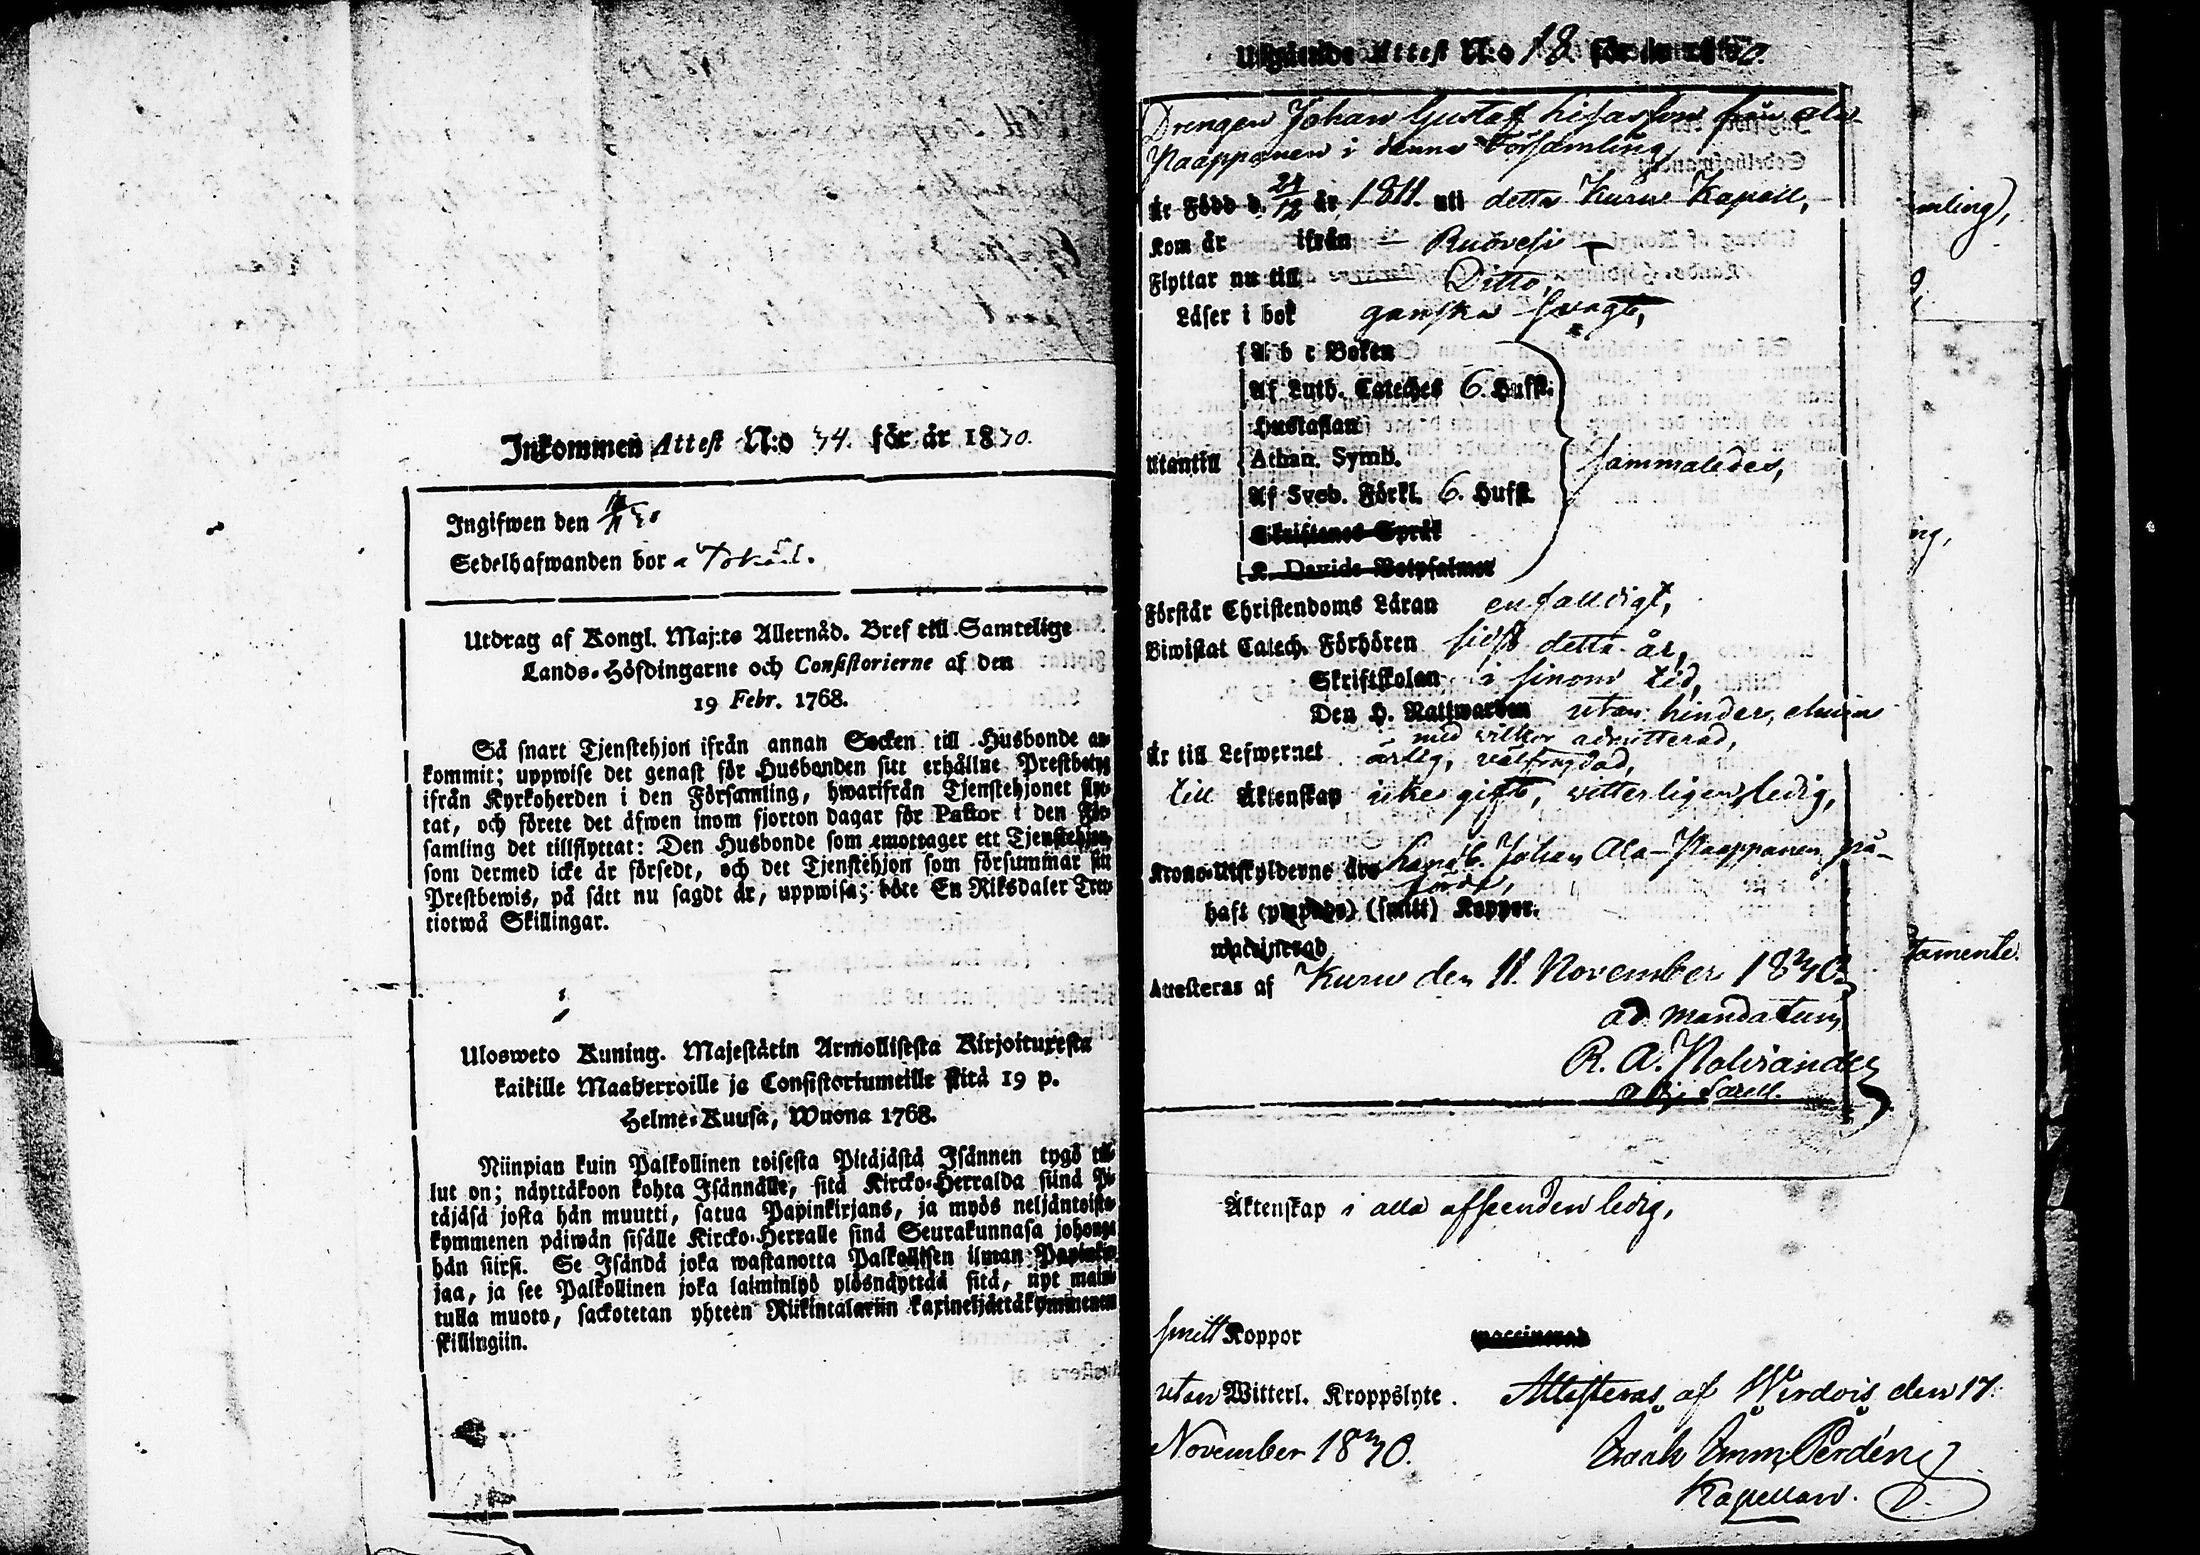 Inkommen Attest N:o 34. för år 1830.
Ingifwen den
Sedelhafwanden bor
Utdrag af Kongl. Maj:ts Allernåd. Bref till Samtelige
Lands-Höfdingarne och Consistorierne af den
19 Febr. 1768.
Så snart Tjenstehjon ifrån annan Socken till Husbonde an-
kommit; uppwise det genast för Husbonden sitt erhållne Prestbetyg
ifrån Kyrkoherden i den Församling, hwarifrån Tjenstehjonet flyt-
tat, och förete det äfwen inom fjorton dagar för Pastor i den För-
samling det tillflyttat: Den Husbonde som emottager ett Tjenstehjon,
som dermed icke är försedt, och det Tjenstehjon som försummar sitt
Prestbewis, på sätt nu sagdt är, uppwisa; böte En Riksdaler Tret-
tiotwå Skillingar.
Ulosweto Kuning. Majestätin Armollisesta Kirjoituxesta
kaikille Maaherroille ja Consistoriumeille siitä 19 p.
Helme-Kuusa, Wuona 1768.
Niinpian kuin Palkollinen toisesta Pitäjästä Isännen tygö tul-
lut on; näyttäkoon kohta Isännälle, sitä Kircko-Herralda siinä Pi-
täjäsä josta hän muutti, satua Papinkirjans, ja myös neljäntoista-
kymmenen päiwän sisälle Kircko-Herralle sinä Seurakunnasa johonga
hän siirsi. Se Isändä joka wastanotta Palkollisen ilman Papinkir-
jaa, ja see Palkollinen joka laiminlyö ylösnäyttää sitä, nyt maini-
tulla muoto, sackotetan yhteen Riikintalariin kaxineljättäkymmenen
skillingiin.
Utgående Attest N:o 18. för år 1830.
Drengen Johan Gustaf Lisasson från Ala-
Kaappanen i denna Församling
är Född d. 24/12 år 1811. uti detta Kuru Kapell,
Kom år ifrån – Ruovesi –
Flyttar nu till Ditto,
Läser i bok ganska svagt,
A b c Boken
Af Luth. Cateches 6. Hufst.
Hustaflan
Utantill Athan. Symb. sammaledes,
Af Sveb. Förkl. 6. Hufst.
Skriftenes Språk
K. Davids Botpsalmer
Förstår Christendoms Läran enfaldigt,
Biwistat Catech. Förhören sidst detta år,
Skriftskolan i sinom tid,
Den H. Nattwarden utan hinder,
med willkor admitterad,
är till Lefwernet ärlig, välfrägdad,
till Äktenskap icke gift, vitterligen ledig,
Krono-Utskylderne äro Landb. Johan Ala-Kaappanen på-
förda,
haft (ympade) (smitt) Koppor.
waccinerad
Attesteras af Kuru den 11. November 1830.
ad mandatum
R. A.
mling,
ng,
tamente.
Äktenskap i alla afseenden ledig,
smitt Koppor waccinerad
utan Witterl. Kroppslyte. Attesteras af Wirdois den 17.
November 1830.
Kapellan.